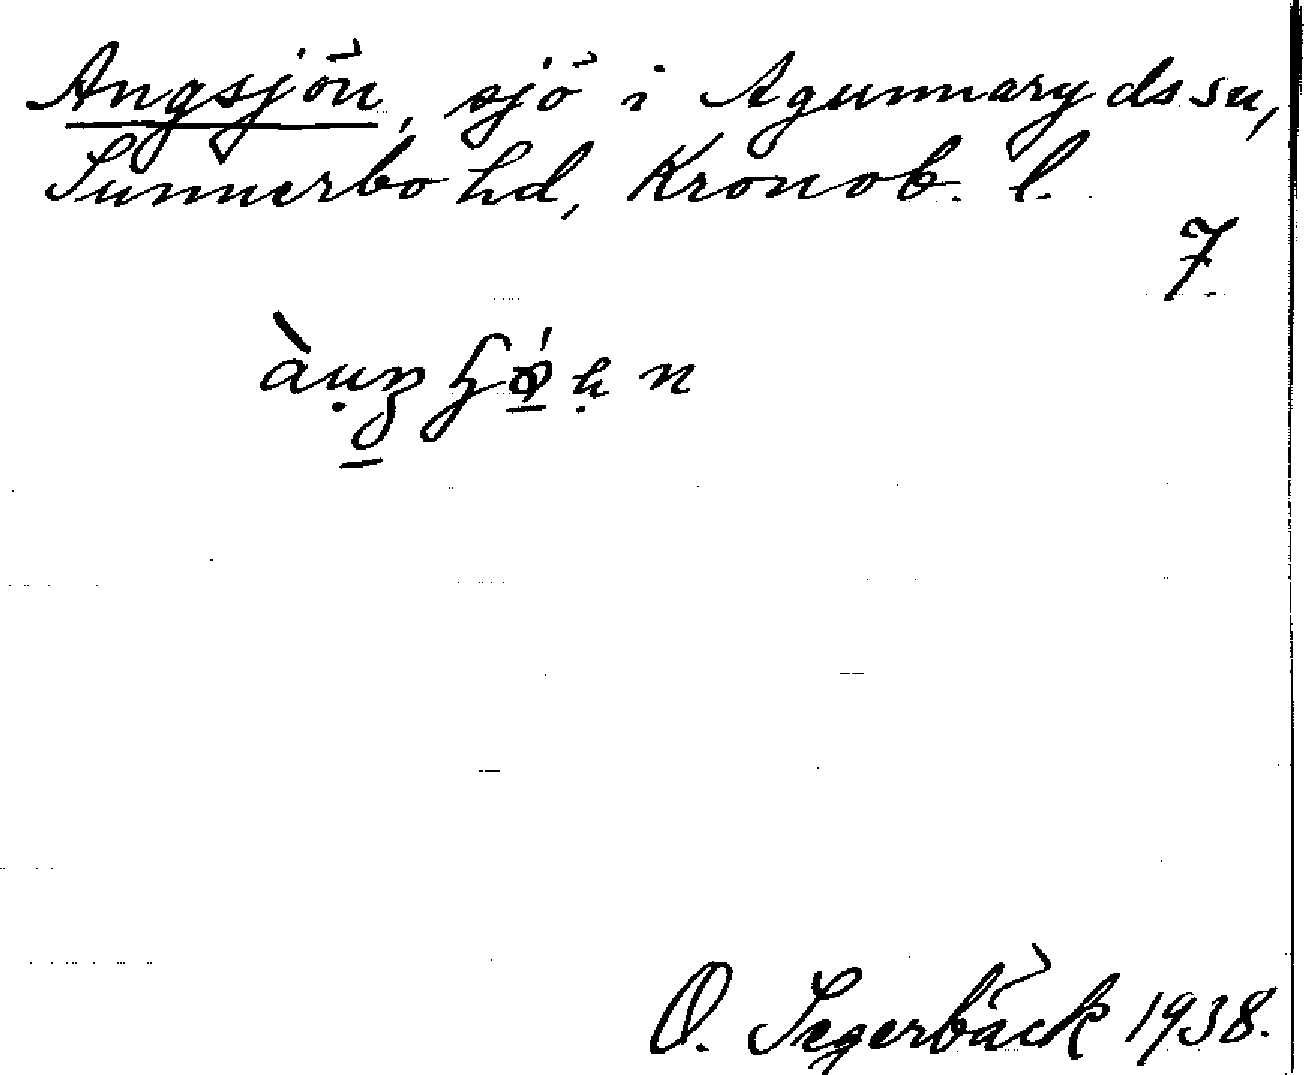 Angsjön, sjö i Agunnarydssn,
Sunnerbo hd, Kronob. l.
7
O. Segerbäck 1938.